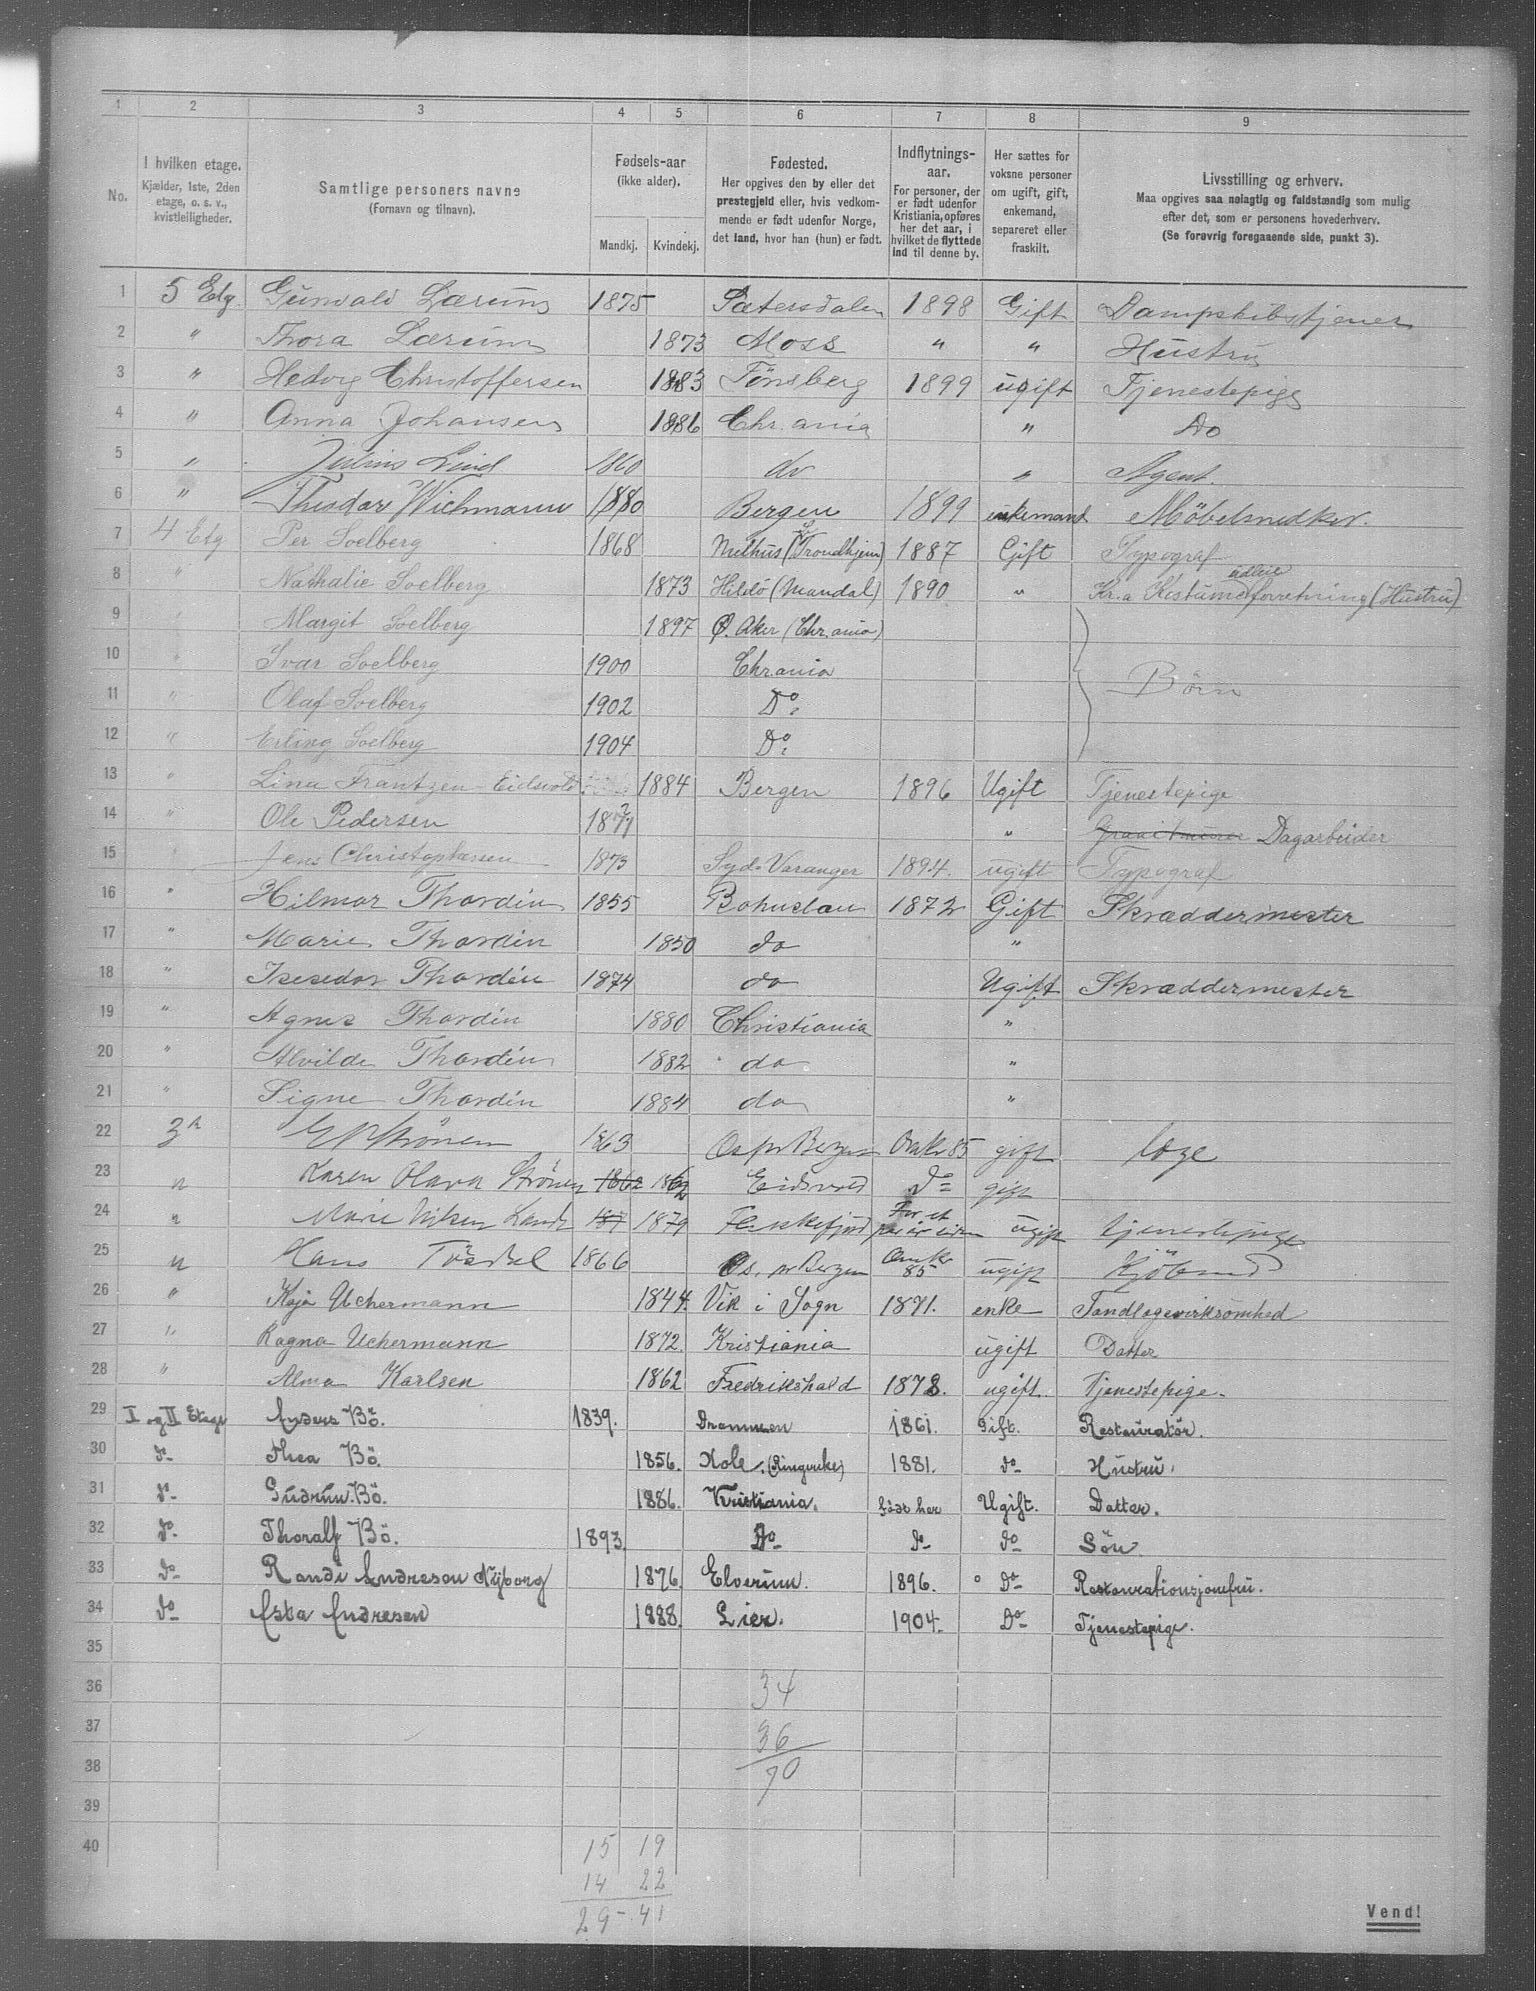 1 2 3 4 5 6 7 8 9
No.
I hvilken etage.
Kjælder, 1ste, 2den
etage, o. s. v.,
kvistleiligheder.
Samtlige personers navne
(Fornavn og tilnavn).
Fødsels-aar
(ikke alder).
Mandkj. Kvindekj.
Fødested.
Her opgives den by eller det
prestegjeld eller, hvis vedkom-
mende er født udenfor Norge,
det land, hvor han (hun) er født.
Indflytnings-
aar.
For personer, der
er født udenfor
Kristiania, opføres
her det aar, i
hvilket de flyttede
ind til denne by.
Her sættes for
voksne personer
om ugift, gift,
enkemand,
separeret eller
fraskilt.
Livsstilling og erhverv.
Maa opgives saa nøiagtig og fuldstændig som mulig
efter det, som er personens hovederhverv.
(Se forøvrig foregaaende side, punkt 3).
1 5 Etg. Gunvald Lærum 1875 Sætersdalen 1898 Gift Dampskibstjener
2 " Thora Lærum 1873 Moss " " Hustru
3 " Hedvig Christoffersen 1883 Tönsberg 1899 ugift Tjenestepige
4 " Anna Johansen 1886 Chr.ania " Do
5 " Julius Lind 1860 do " Agent.
6 " Theodor Wichmann 1880 Bergen 1899 enkemand Möbelsnedker.
7 4 Etg Per Soelberg 1868 Melhus (Trondhjem) 1887 Gift Typograf
8 " Nathalie Soelberg 1873 (Mandal) 1890 " Kr.a Kostume udleie forretning (Hustru)
9 Margit Soelberg 1897 Ø. Aker (Chr.ania)
10 " Ivar Soelberg 1900 Chrania
11 " Olaf Soelberg 1902 Do. Börn
12 " Erling Soelberg 1904 Do.
13 " Lina Frantzen-Eidsvold 1884 Bergen 1896 Ugift Tjenestepige
14 " Ole Pedersen 1872 " Dagarbeider
15 Jens Christophersen 1873 Syd-Varanger 1894. ugift Typograf
16 " Hilmar Thordin 1855 Bohuslau 1872 Gift Skræddermester
17 " Marie Thordin 1850 do "
18 " Isesedor Thordin 1874 do Ugift Skræddermester
19 " Agnes Thordin 1880 Christiania "
20 " Alvilde Thordin 1882 do "
21 " Signe Thordin 1884 do "
22 3 Strönen 1863 Os pr Bergen Omkr 85 gift læge
23 " Karen Olava Strönen 1862 1862 Eidsvold Do gift
24 " Marie 187 1879 Flekkefjord For et par år siden ugift tjenestepige
25 " Hans 1866 Os. pr Bergen Omkr 85 ugift
26 " Kaja Uchermann 1844. Vik i Sogn 1871. enke Tandlægevirksomhed
27 " Ragna Uchermann 1872. Kristiania ugift Datter
28 " Alma Karlsen 1862 Fredrikshald 1878. ugift. Tjenestepige.
29 I og II Etage Anders Bö. 1839. Drammen 1861. Gift. Restauratör.
30 do Thea Bö. 1856. Hole. (Ringerike) 1881. do Hustru.
31 do Gudrun Bö. 1886. Kristiania. född her Ugift. Datter.
32 do Thoralf Bö. 1893. Do do do Sön.
33 do Randi Andresen Nyborg 1876. Elverum. 1896. Do Restaurationsjomfru.
34 do Asta Andresen 1888. Lier. 1904. Do Tjenestepige.
35
36 34
37 36
38 70
39
40 15 19
14 22
29-41
Vend!